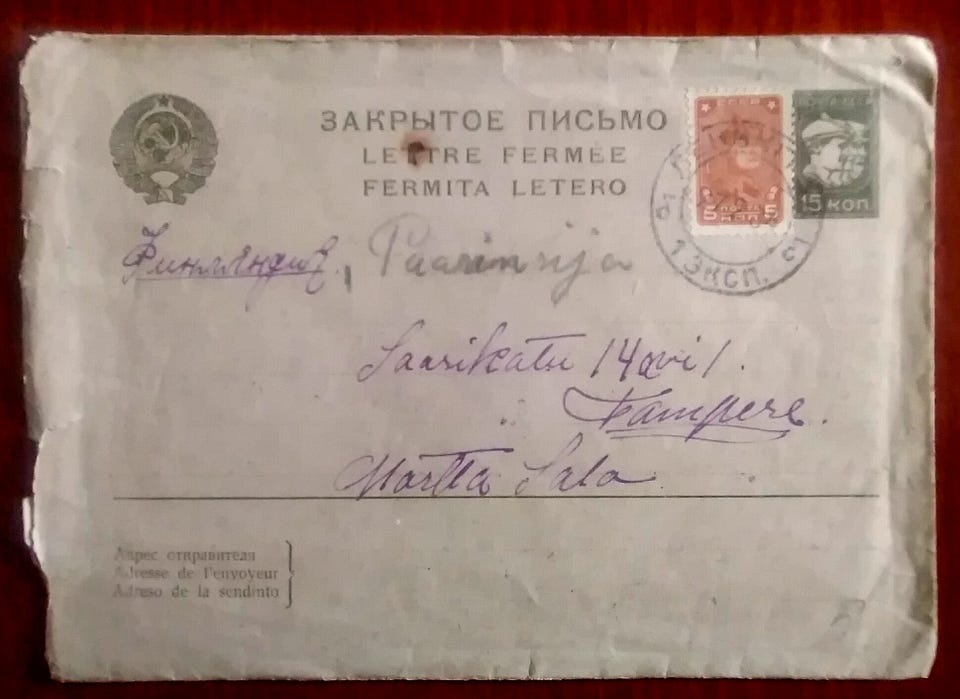 ЗАКРЫТОЕ ПИСЬМО
LETTRE FERMÉE
FERMITA LETERO
СССР
5 5
ПОЧТА
КОП
15 КОП
1 ЭКСП.
Финляндия, Paarinsija
Saarikatu 14 ovi 1.
Tampere.
Martta Salo
Адрес отправителя
Adresse de l'envoyeur
Adreso de la sendinto